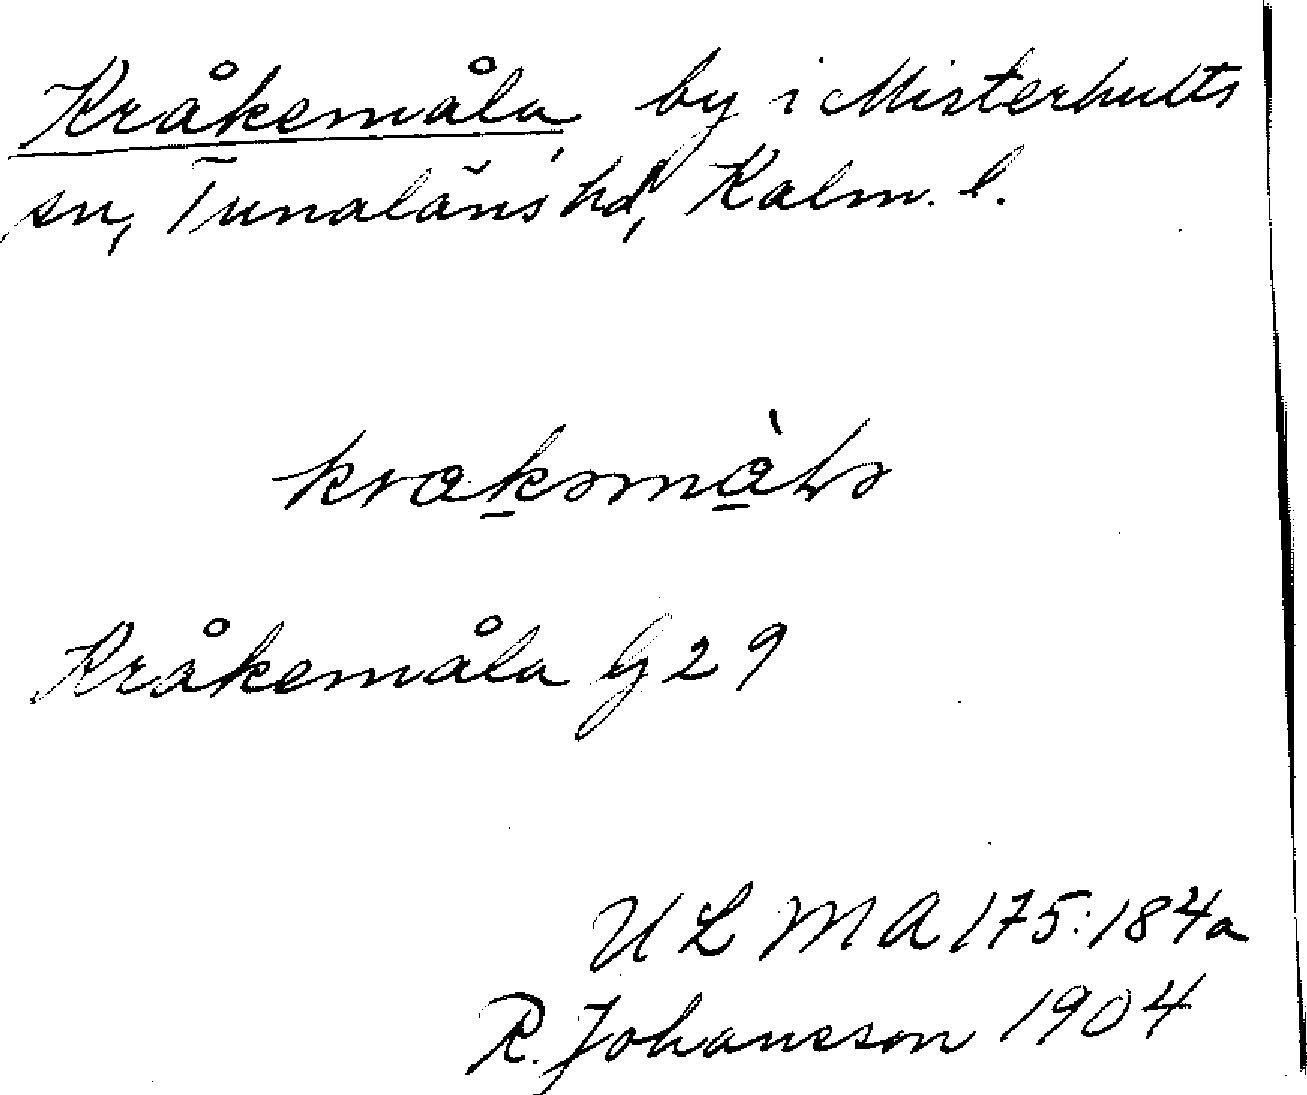 Kråkemåla by i Misterhults
sn, Tunaläns hd, Kalm. l.
krakəmàlə
Kråkemåla G 29
ULMA 175:184a
R. Johansson 1904